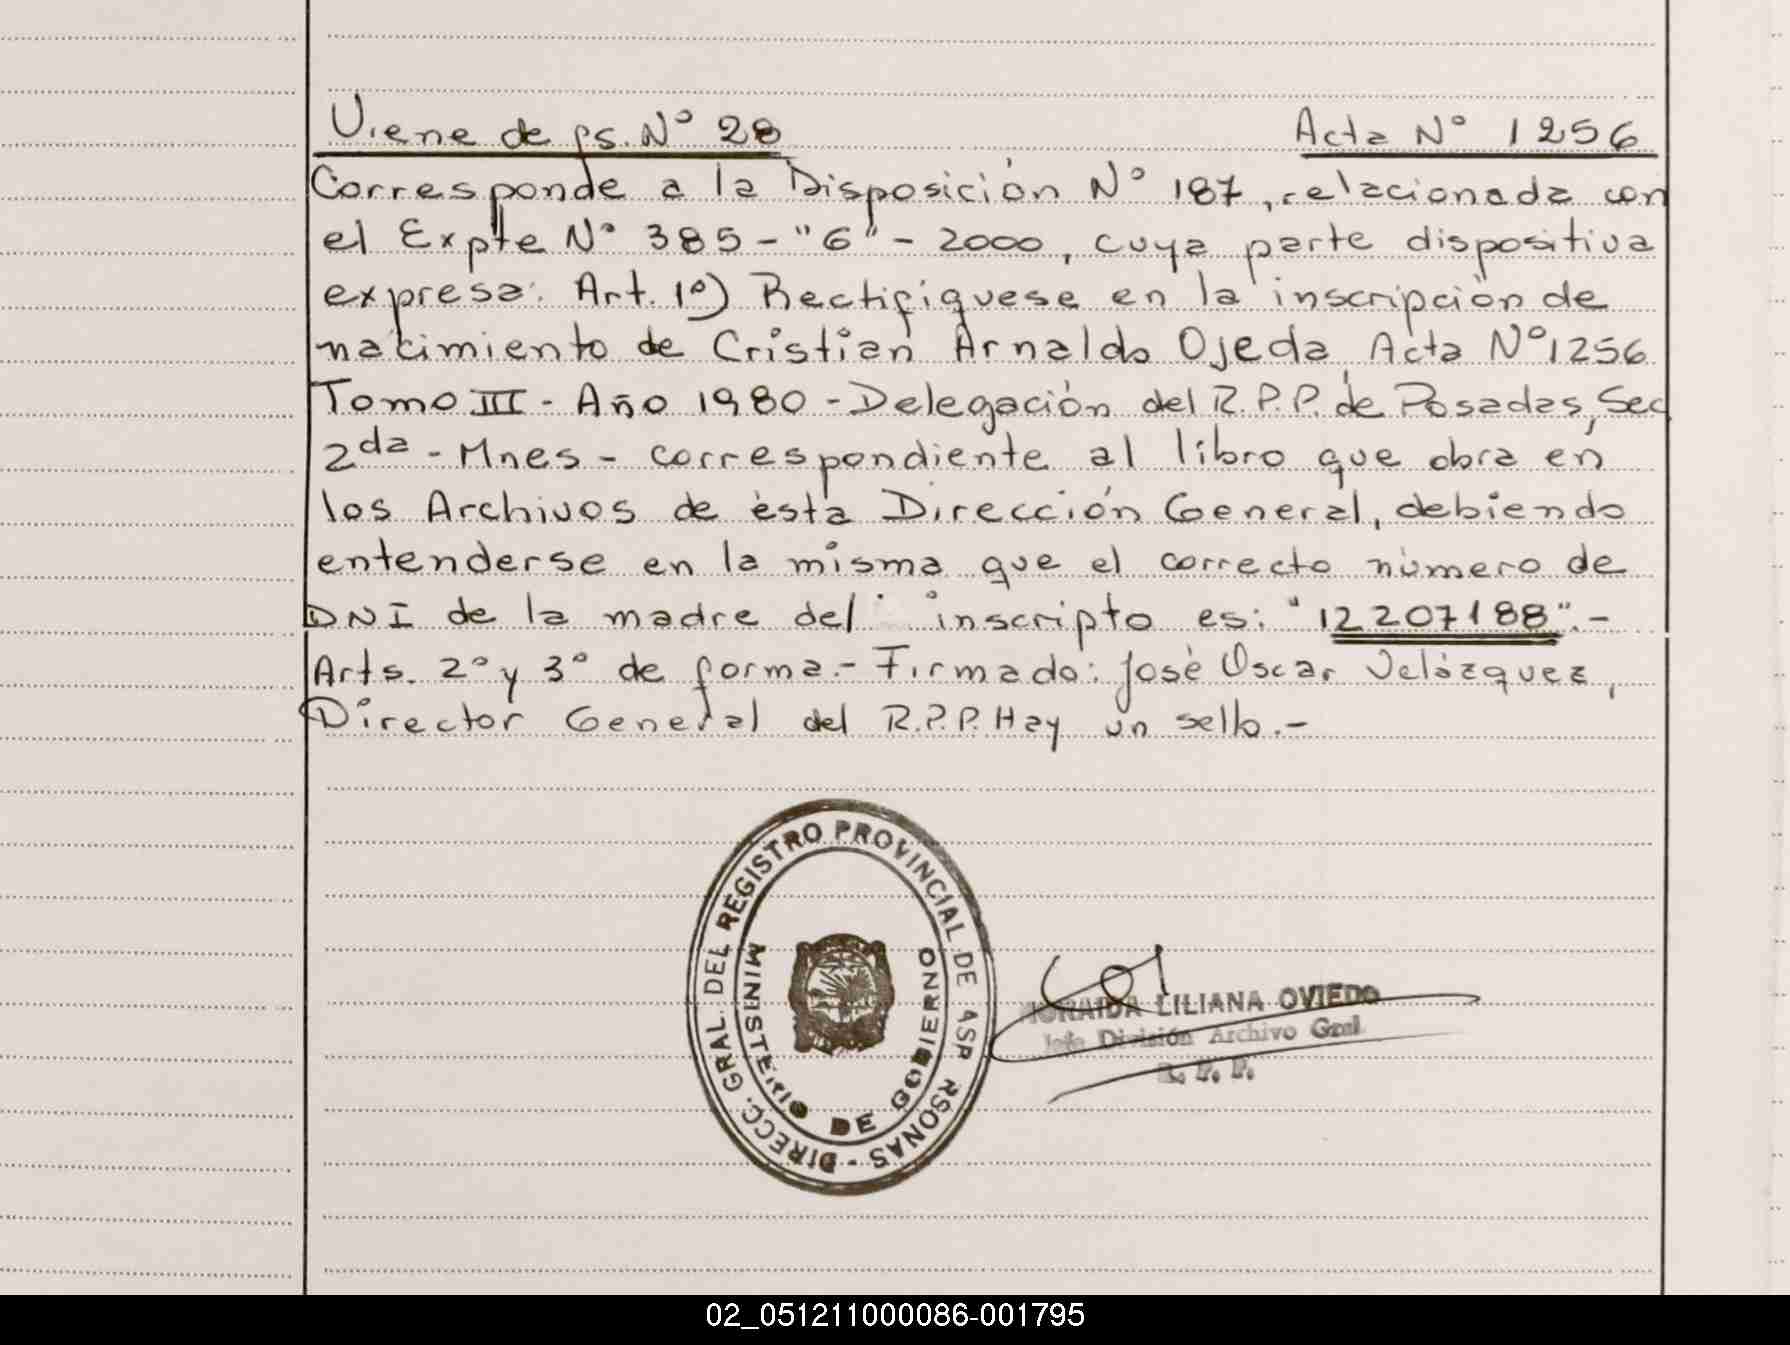 Viene de fs. Nº 28
Acta Nº 1256
Corresponde a la Disposición Nº 187, relacionada con
el Expte Nº 385-"6"-2000, cuya parte dispositiva
expresa: Art. 1º) Rectifíquese en la inscripción de
nacimiento de Cristian Arnaldo Ojeda Acta Nº 1256
Tomo III - Año 1980 - Delegación del R.P.P. de Posadas, Sec
2da - Mnes - correspondiente al libro que obra en
los Archivos de ésta Dirección General, debiendo
entenderse en la misma que el correcto número de
DNI de la madre del inscripto es: "12207188".-
Arts. 2º y 3º de forma.- Firmado: José Oscar Velázquez,
Director General del R.P.P. Hay un sello.-
DIRECC. GRAL. DEL REGISTRO PROVINCIAL DE ASP RSONAS -
MINISTERIO DE GOBIERNO
LILIANA OVIEDO
Jefe División Archivo Gral.
R. P. P.
02_051211000086-001795